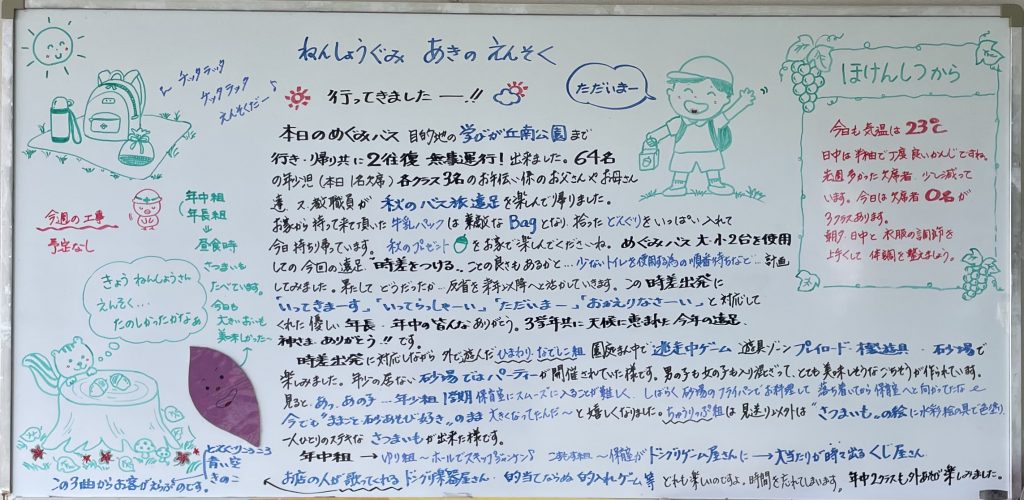 ねんしょうぐみ あきの えんそく
行ってきました ー.!!
ただいまー
♪ ケッタラック
ケッタラック
えんそくだー♪
ほけんしつから
今日も 気温は 23℃
日中は 半袖で丁度良いかんじですね。
先週 多かった 欠席者 少し減って
います。今日は 欠席者 0名が
3クラスあります。
朝夕・日中と 衣服の調節を
上手くして 体調を整えましょう。
今週の工事
予定なし
年中組
年長組
昼食時
さつまいも
たべています。
今日も
大きいおいも
美味しかったー
きょう ねんしょうさん
えんそく・・・
たのしかったかなぁ
本日のめぐみバス 目的地の 学びが丘南公園 まで
行き・帰り共に 2往復 無事運行! 出来ました。64名
の年少児(本日1名欠席) 各クラス3名の お手伝い係の お父さんやお母さん
達、教職員が 秋のバス旅遠足 を楽しんで帰りました。
お家から持って来て頂いた 牛乳パック は 素敵な Bag となり、拾った どんぐり をいっぱい入れて
今日 持ち帰っています。 秋のプレゼント をお家で楽しんでくださいね。 めぐみバス 大・小2台を使用
しての 今回の遠足、"時差をつける"・・ことの良さもあるかと・・・少ないトイレを使用する為の順番待ちなど・・・計画
してみました。果たして どうだったか・・・反省を 来年以降へと活かしていきます。この 時差出発に
「いってきまーす」「いってらっしゃーい」「ただいまー」「おかえりなさーい」と 対応して
くれた優しい 年長・年中の皆んな ありがとう。3学年共に 天候に恵まれた 今年の遠足、
神さま ありがとう!! です。
時差出発 に対応しながら 外で遊んだ ひまわり・なでしこ組 園庭まん中で 逃走中ゲーム 遊具ゾーン プレイロード・ 遊具・砂場で
楽しみました。年少の居ない 砂場ではパーティーが 開催されていた様です。男の子も女の子も入り混ざって、とても美味しそうなごちそうが作られています。
見ると、あっ、あの子・・・年少組 1学期 保育室にスムーズに入ることが難しく、しばらく 砂場のフライパンでお料理して 落ち着いてから 保育室へ向かってたな〜
今でも "ままごと 砂あそび好き" のまま 大きくなってたんだ〜 と 嬉しくなりました。ちゅうりっぷ組 は 見送り以外は "さつまいも"の絵 に 水彩絵の具で色塗り、
一人ひとりのステキな さつまいも が出来た様です。
年中組 → ゆり組〜ホールでスキップジャンケン♪ 〜保育室が ドングリゲーム屋さんに → 大当たりが時々出る くじ屋さん
お店の人が歌ってくれる ドングリ楽器屋さん・的当てならぬ 的入れゲーム 等 どれも楽しいのですよ。時間を忘れてしまいます。年中2クラスも外あそびが楽しみました。
どんぐりころころ
青い空
きのこ
この3曲からお客がえらぶのです。